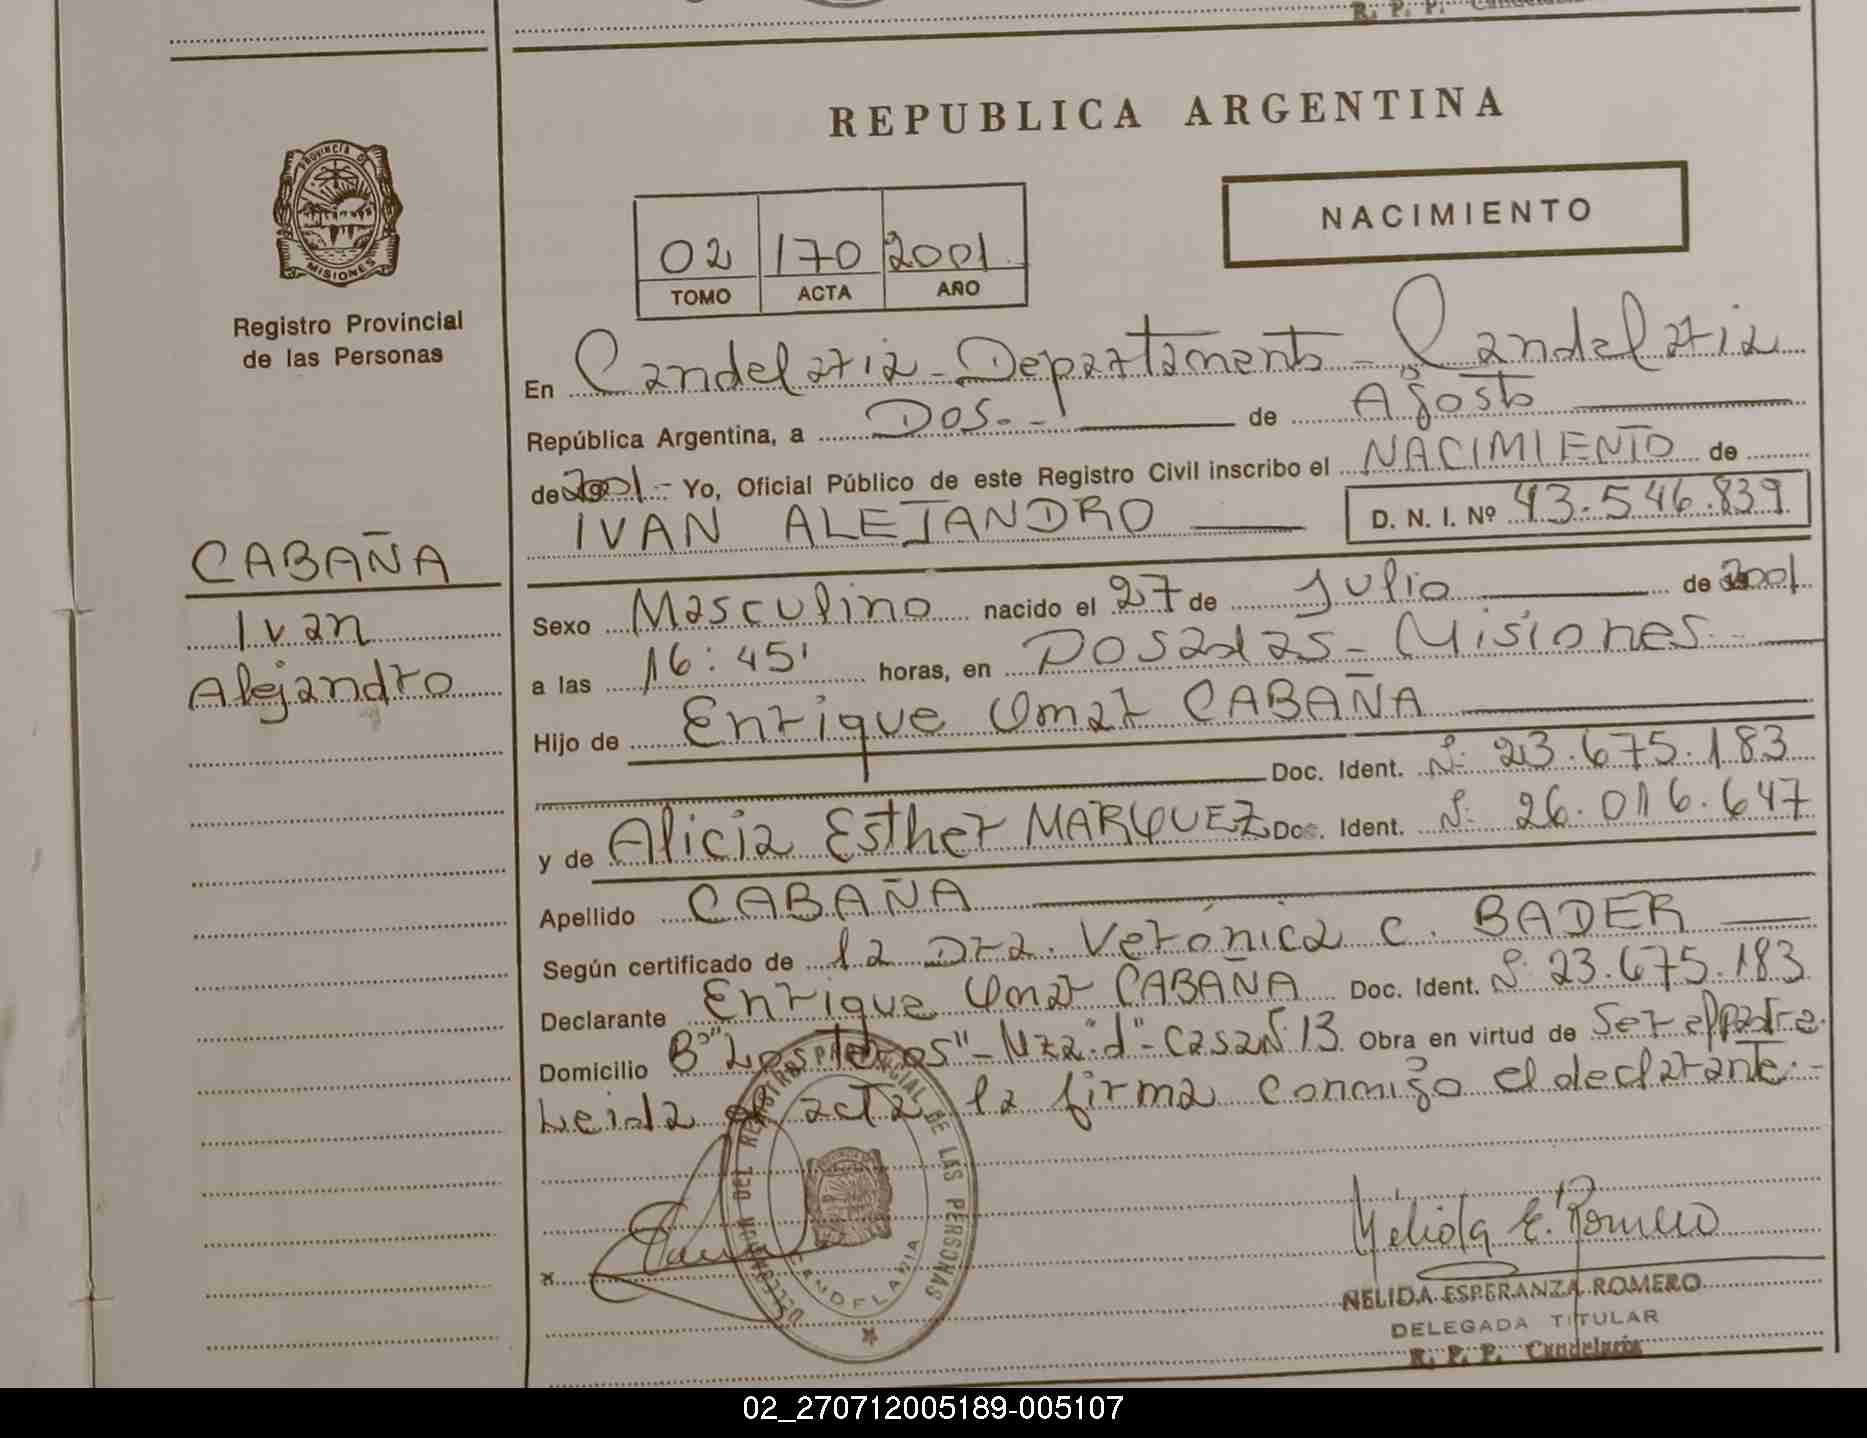 R. P. P. Candelaria
REPUBLICA ARGENTINA
PROVINCIA DE
MISIONES
Registro Provincial
de las Personas
NACIMIENTO
02 170 2001
TOMO ACTA AÑO
En Candelaria - Departamento - Candelaria
República Argentina, a Dos.- de Agosto
de 2001.- Yo, Oficial Público de este Registro Civil inscribo el NACIMIENTO de
IVAN ALEJANDRO D. N. I. Nº 43.546.839
CABAÑA
Ivan
Alejandro
Sexo Masculino nacido el 27 de Julio de 2001
a las 16:45' horas, en Posadas - Misiones
Hijo de Enrique Omar CABAÑA
Doc. Ident. Nº 23.675.183
y de Alicia Esther MARQUEZ Doc. Ident. Nº 26.016.647
Apellido CABAÑA
Según certificado de la Dra. Verónica C. BADER
Declarante Enrique Omar CABAÑA Doc. Ident. Nº 23.675.183
Domicilio Bº - Mza "d" - Casa Nº 13 Obra en virtud de Ser el padre.
Leida el acta, la firma conmigo el declarante.-
DELEGACION DEL REGISTRO PROVINCIAL DE LAS PERSONAS
CANDELARIA
x
Nélida E. Romero
NELIDA ESPERANZA ROMERO
DELEGADA TITULAR
R. P. P. Candelaria
02_270712005189-005107